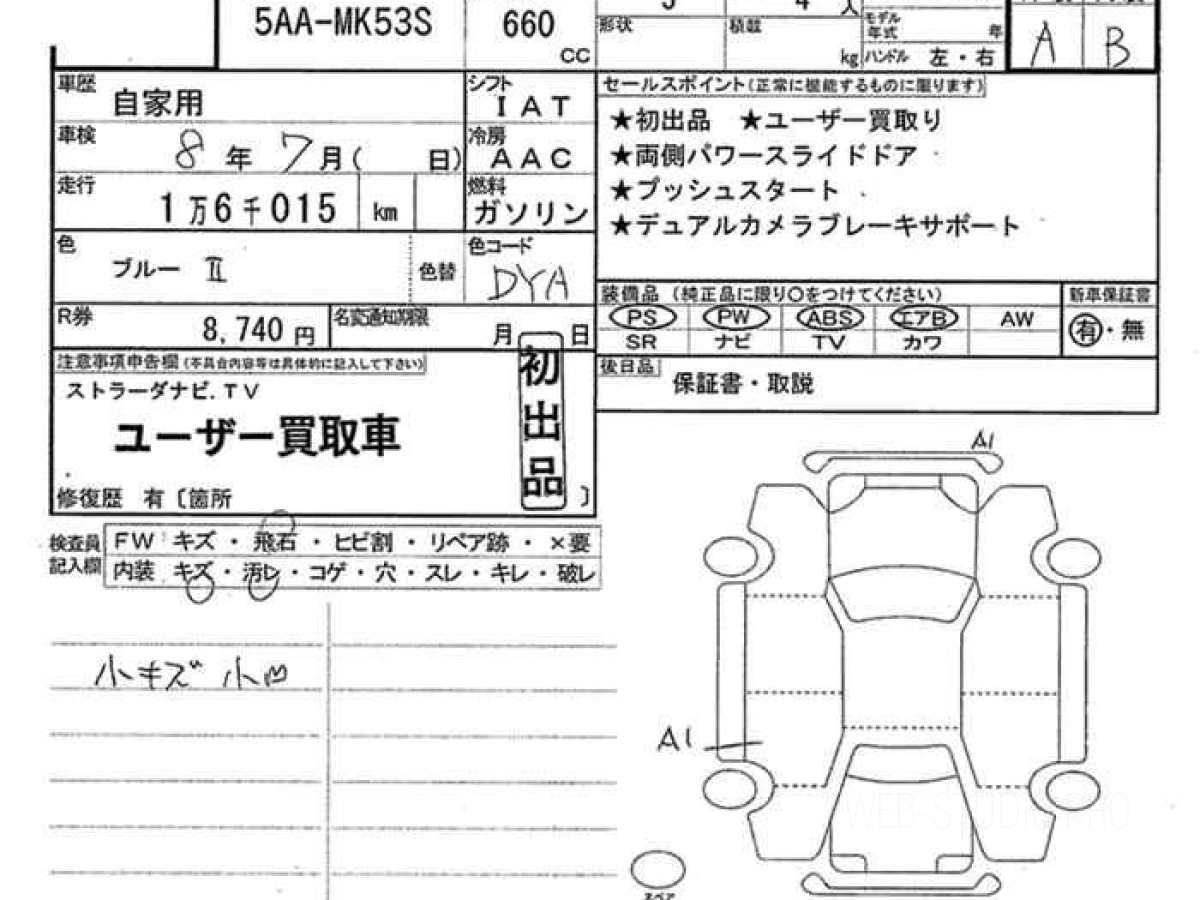 5AA-MK53S 660 CC
形状 積載 kg
モデル年式 年
ハンドル 左・右
A B
車歴 自家用
シフト IAT
車検 8年 7月( 日)
冷房 AAC
走行 1万6千015 km
燃料 ガソリン
色 ブルー II 色替
色コード DYA
R券 8,740 円
名変通知期限 月 日
セールスポイント(正常に機能するものに限ります)
★初出品 ★ユーザー買取り
★両側パワースライドドア
★プッシュスタート
★デュアルカメラブレーキサポート
装備品 (純正品に限り○をつけてください) 新車保証書
PS PW ABS エアB AW
SR ナビ TV カワ
有・無
後日品 保証書・取説
注意事項申告欄(不具合内容等は具体的に記入して下さい)
ストラーダナビ.TV
ユーザー買取車
初出品
修復歴 有〔箇所 〕
検査員記入欄
FW キズ・飛石・ヒビ割・リペア跡・×要
内装 キズ・汚レ・コゲ・穴・スレ・キレ・破レ
小キズ 小凹
A1
A1
スペア